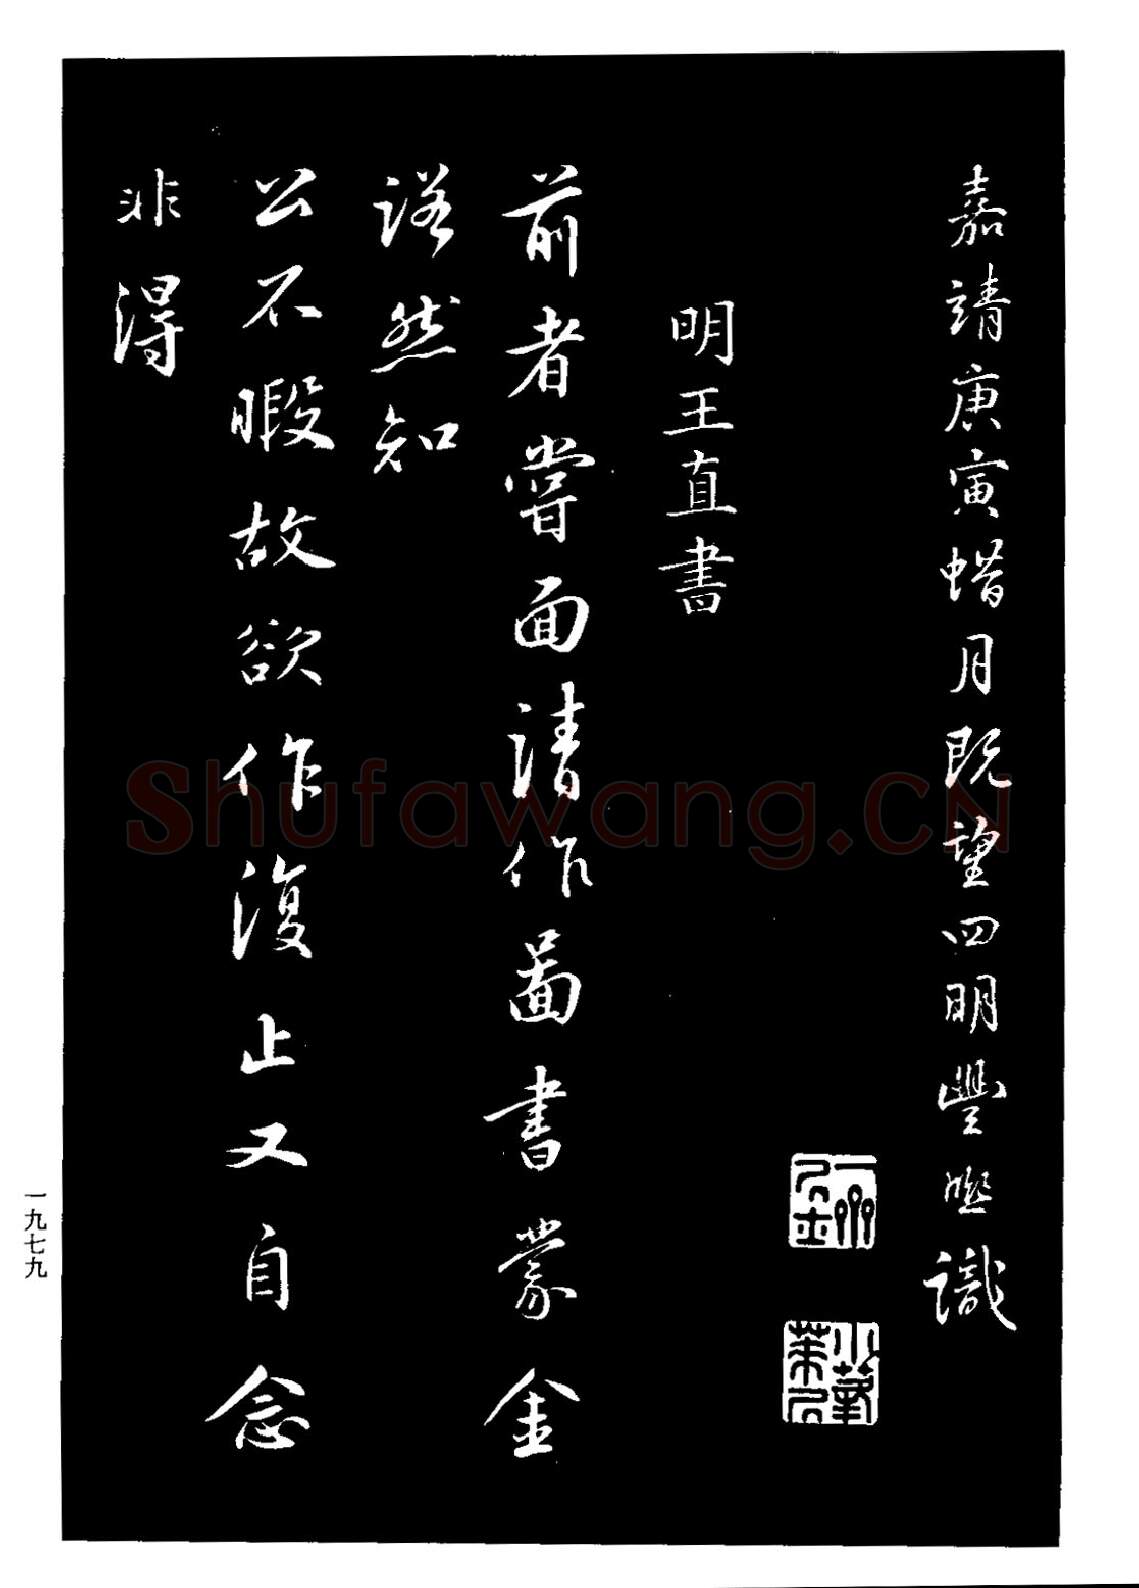 嘉靖庚寅蜡月既望四明豐熙識
明王直書
前者嘗面請作啚書蒙金
諾然知
公不暇故欲作復止又自念
非得
一九七九
Shufawang.CN